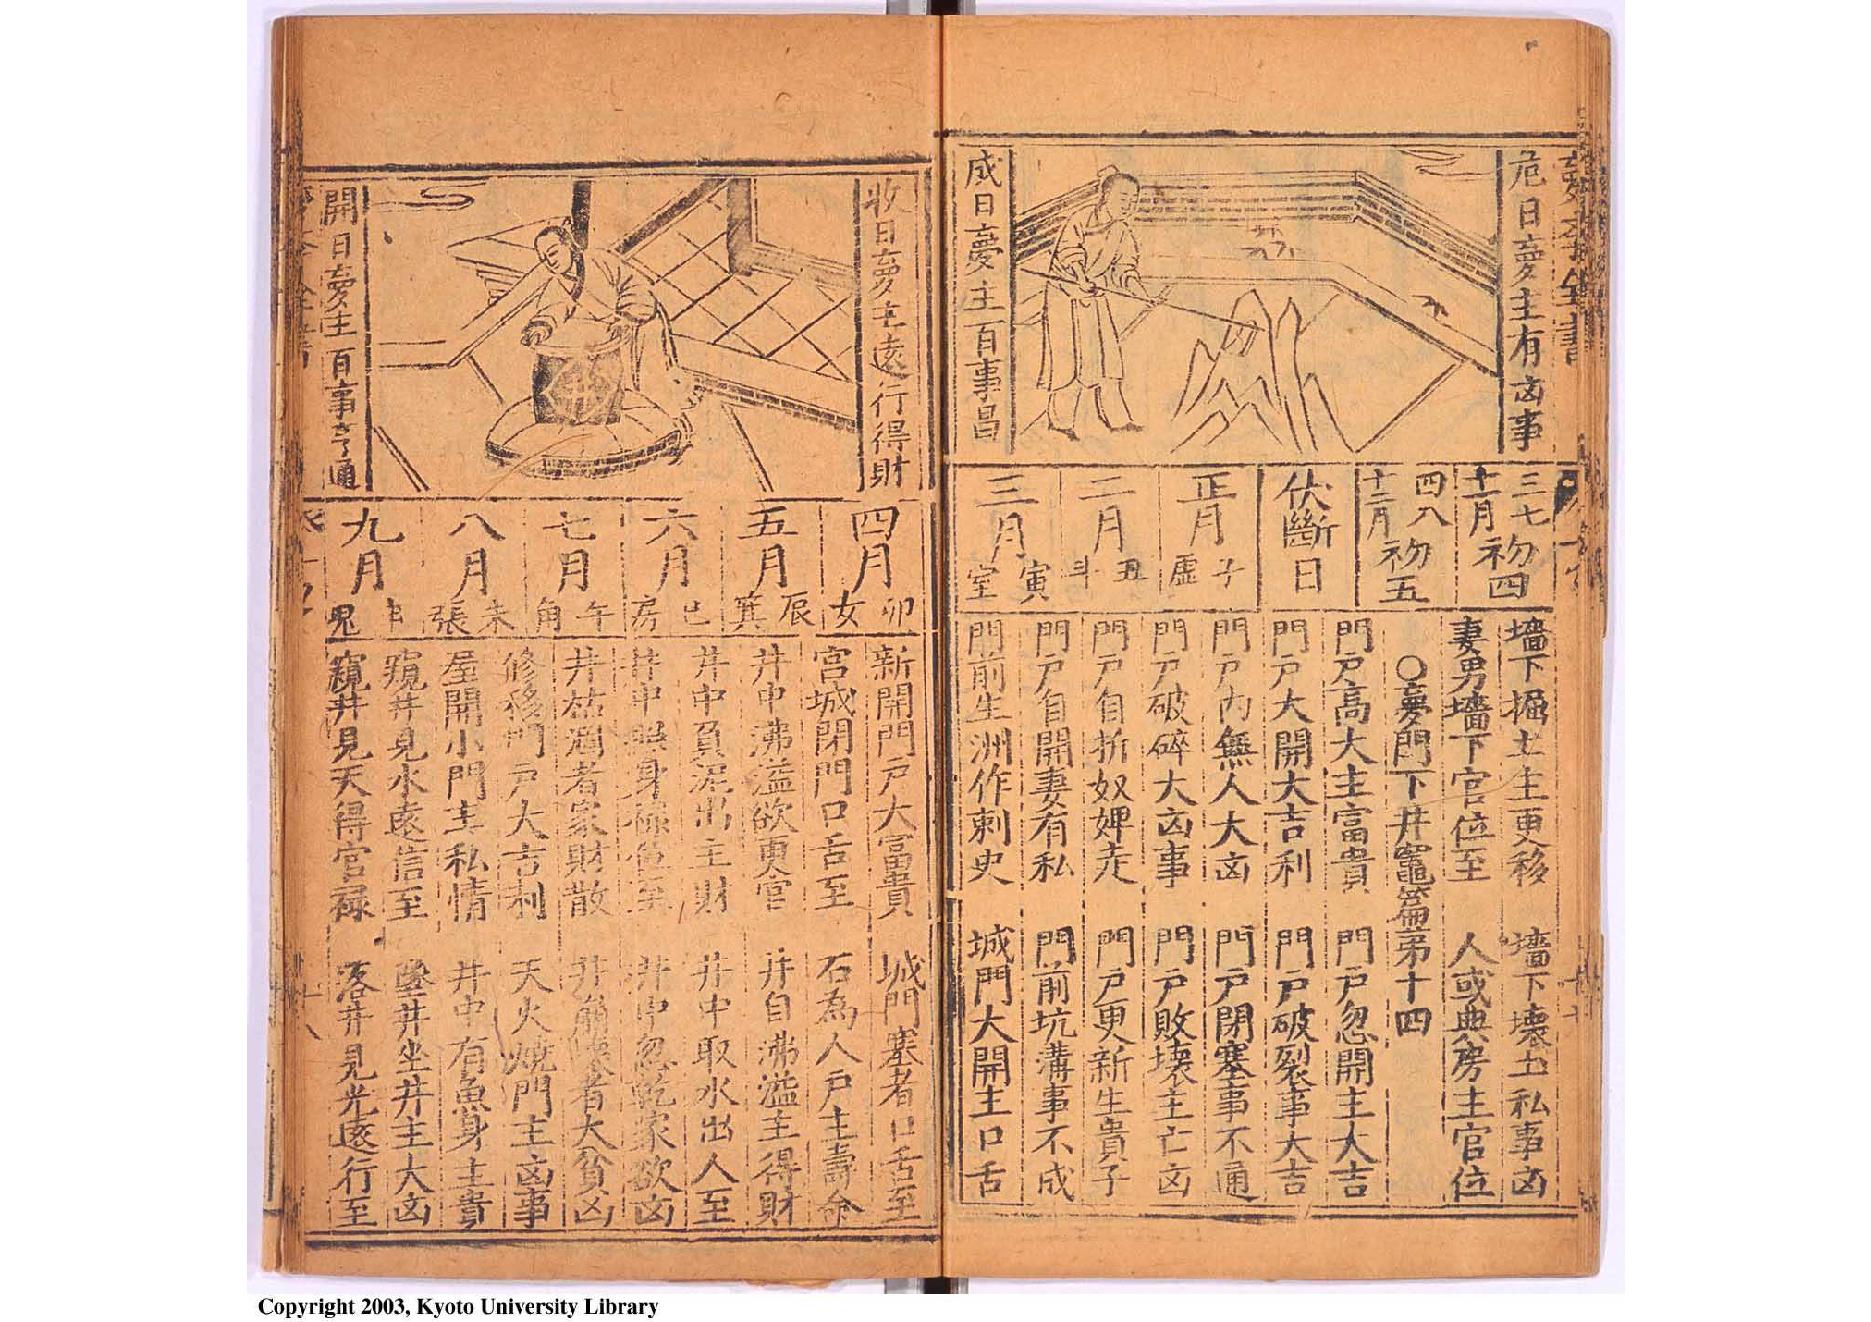 危日夣主有凶事
成日夣主百事昌
三七十一月初四
四八十二月初五
伏斷日
正月子虛
二月丑斗
三月寅室
墻下掘土主更移 墻下壊土私事凶
妻男墻下官位至 人或典房主官位
○夣門下井竈篇第十四
門戸高大主富貴 門戸忽開主大吉
門戸大開大吉利 門戸破裂事大吉
門戸內無人大凶 門戸閉塞事不通
門戸破碎大凶事 門戸敗壊主亡凶
門戸自折奴婢走 門戸更新生貴子
門戸自開妻有私 門前坑溝事不成
門前生洲作刺史 城門大開主口舌
收日夣主遠行得財
開日夣主百事亨通
四月卯女
五月辰箕
六月巳房
七月午角
八月未張
九月申鬼
新開門戸大富貴 城門塞者口舌至
宮城閉門口舌至 石為人戸主壽命
井中沸溢欲更官 井自沸溢主得財
井中負泥出主財 井中取水出人至
井中照身祿位至 井中忽乾家欲凶
井枯涸者家財散 井崩壊者大貧凶
修移門戸大吉利 天火燒門主凶事
屋開小門主私情 井中有魚身主貴
窺井見水遠信至 墜井坐井主大凶
窺井見天得官禄 落井見光遠行至
Copyright 2003, Kyoto University Library